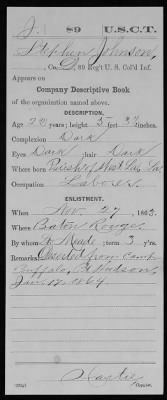 J. 89 U.S.C.T.
Stephen Johnson
Co. D, 89 Reg't U. S. Col'd Inf.
Appears on
Company Descriptive Book
of the organization named above.
DESCRIPTION.
Age 22 years; height 5 feet inches.
Complexion Dark
Eyes Dark; hair Dark
Where born Parish of West La.
Occupation Laborer
ENLISTMENT.
When Nov. 27, 1863.
Where Baton Rouge
By whom Meade; term 3 y'rs.
Remarks: Deserted from camp
Hudson
1864.
Copyist.